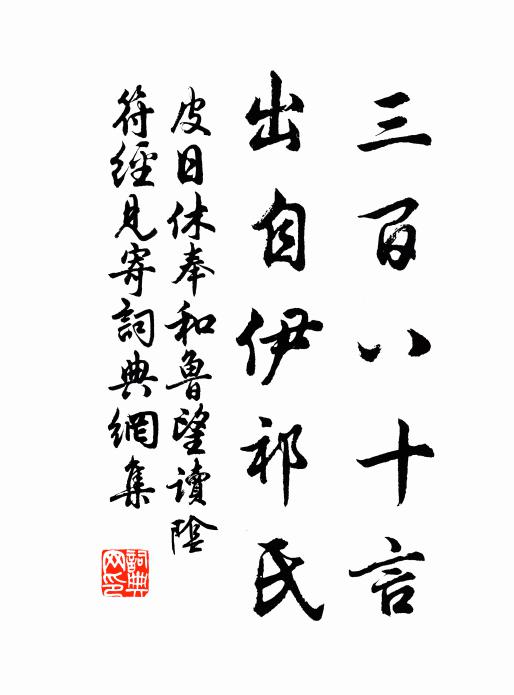 三百八十言
出自伊祁氏
皮日休奉和魯望讀陰
符經見寄詞典網集
詞典
网印